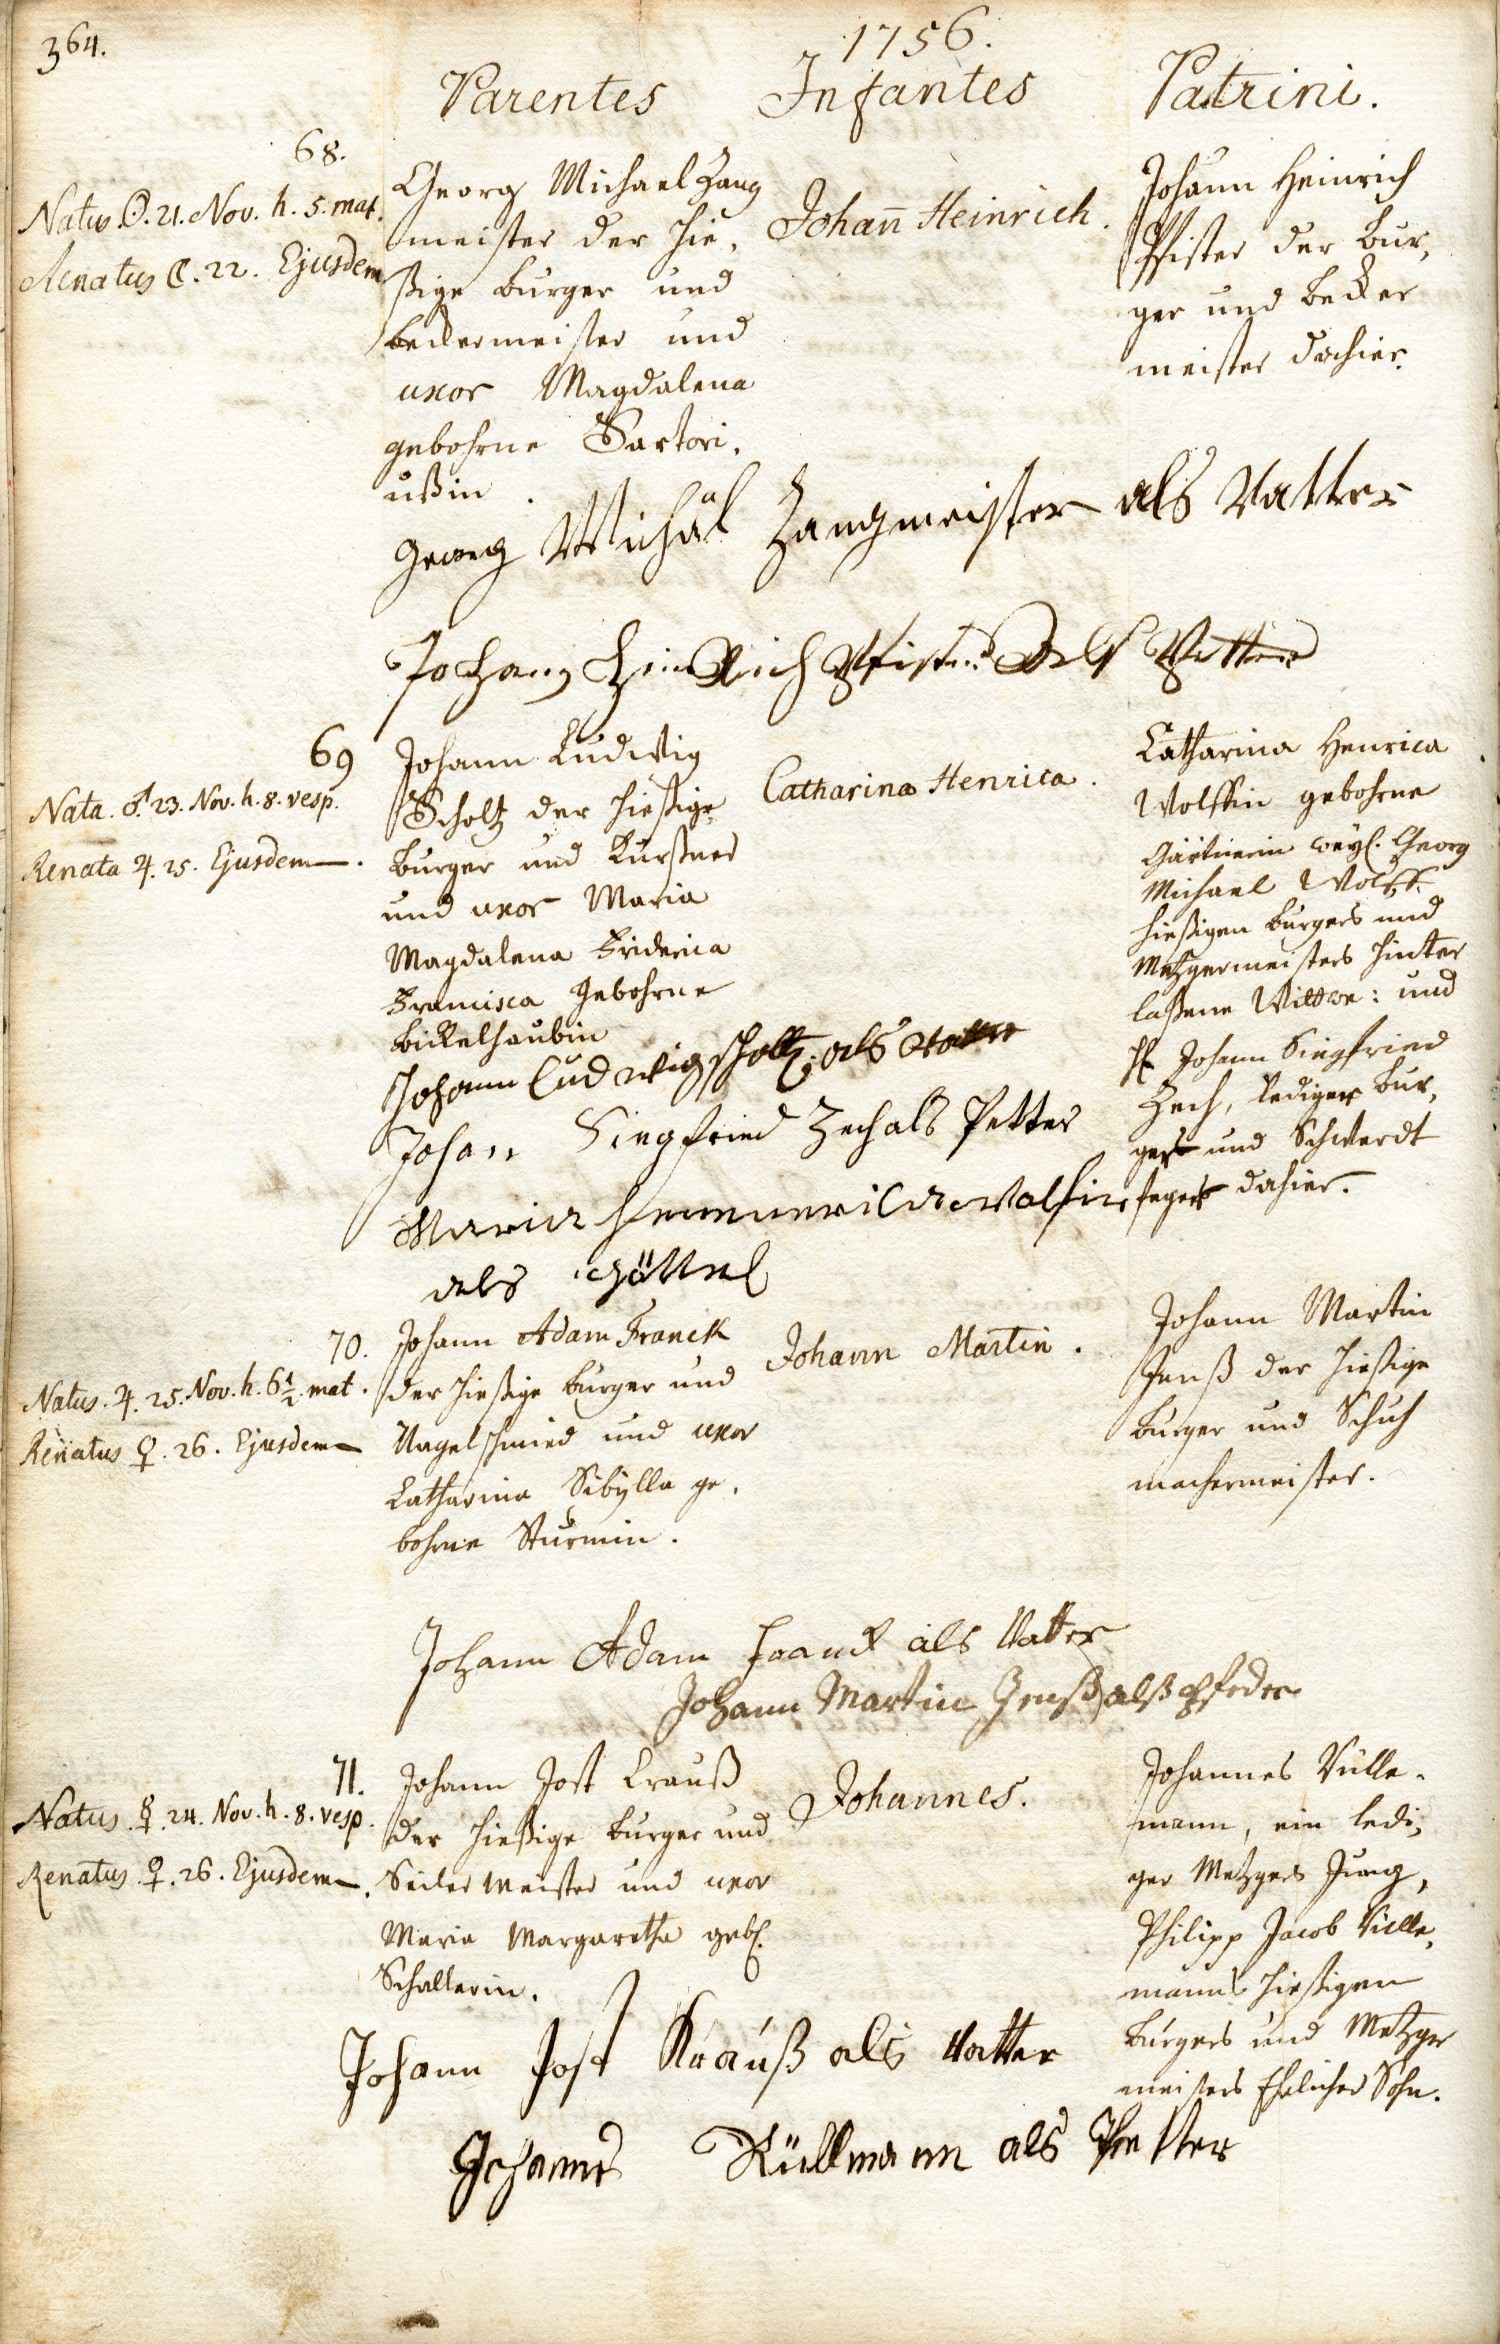 364.
1756.
Parentes Infantes Patrini.
68.
Natus ☉. 21. Nov. h. 5. mat.
Renatus ☾. 22. Ejusdem
Georg Michael Zang
meister der hie,
ßige burger und
beckermeister und
uxor Magdalena
gebohrne Sartori,
ußin.
Johañ Heinrich.
Johann Heinrich
Pfister der bur,
ger und becker
meister dahier.
Georg Michäl Zangmeister als Vatter
Johann Heinrich Pfister Als Petter
69
Nata. ♂. 23. Nov. h. 8. vesp.
Renata ♃. 25. Ejusdem.
Johann Ludwig
Scholtz der hießige
burger und Kurßner
und uxor Maria
Magdalena Friderica
Francisca gebohrne
Bickelhaubin
Catharina Henrica.
Catharina Henrica
Wolffin gebohrne
Gärtnerin weyl. Georg
Michael Wolff
hießigen burgers und
Metzgermeisters hinter
laßene Wittwe: und
H. Johann Siegfried
Zech, lediger bur,
ger und Schwerdt
feger dahier.
Johann Ludwig Scholtz als Vatter
Johann Siegfried Zech als Petter
Maria Wolfin
als göttel
70.
Natus. ♃. 25. Nov. h. 6½. mat.
Renatus ♀. 26. Ejusdem
Johann Adam Franck
der hießige burger und
Nagelschmied und uxor
Catharina Sibylla ge,
bohrne Sturmin.
Johann Martin.
Johann Martin
Jenß der hießige
burger und Schuh
machermeister.
Johann Adam Franck als Vatter
Johann Martin Jenß alß Pfeder
71.
Natus. ☿. 24. Nov. h. 8. vesp.
Renatus. ♀. 26. Ejusdem.
Johann Jost Crauß
der hießige burger und
Seiler meister und uxor
Maria Margaretha geb.
Schallerin.
Johannes.
Johannes Rülle,
mann, ein ledi,
ger Metzger Jung,
Philipp Jacob Rülle,
manns hießigen
burgers und Metzger
meisters Ehelicher Sohn.
Johann Jost Krauß als Vatter
Johannes Rüllmann als Petter